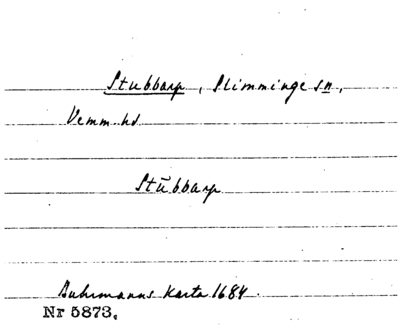 Stubbarp, Slimminge sn,
Vemm. hd
Stübbarp
Buhrmanns karta 1684.
Nr 5873,